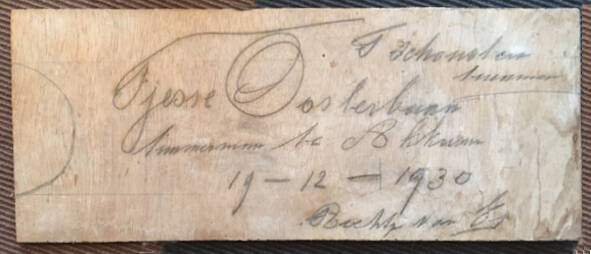 T Schonoben
timmerman
Tjesse Oosterbaan
timmerman te Akkrum
19 - 12 - 1930
van